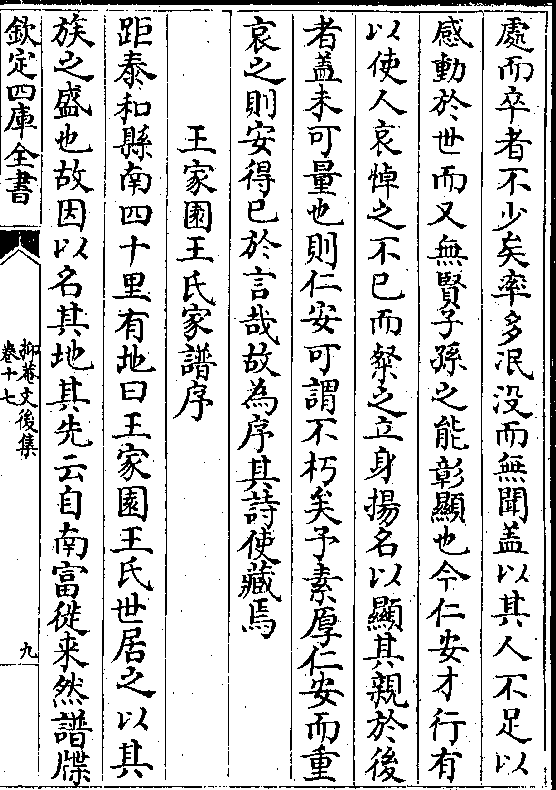 處而卒者不少矣率多泯没而無聞盖以其人不足以
感動於世而又無賢子孫之能彰顯也今仁安才行有
以使人哀悼之不已而粲之立身揚名以顯其親於後
者盖未可量也則仁安可謂不朽矣予素厚仁安而重
哀之則安得已於言哉故為序其詩使藏焉
王家園王氏家譜序
距泰和縣南四十里有地曰王家園王氏世居之以其
族之盛也故因以名其地其先云自南富徙来然譜牒
欽定四庫全書
抑菴文後集
卷十七
九